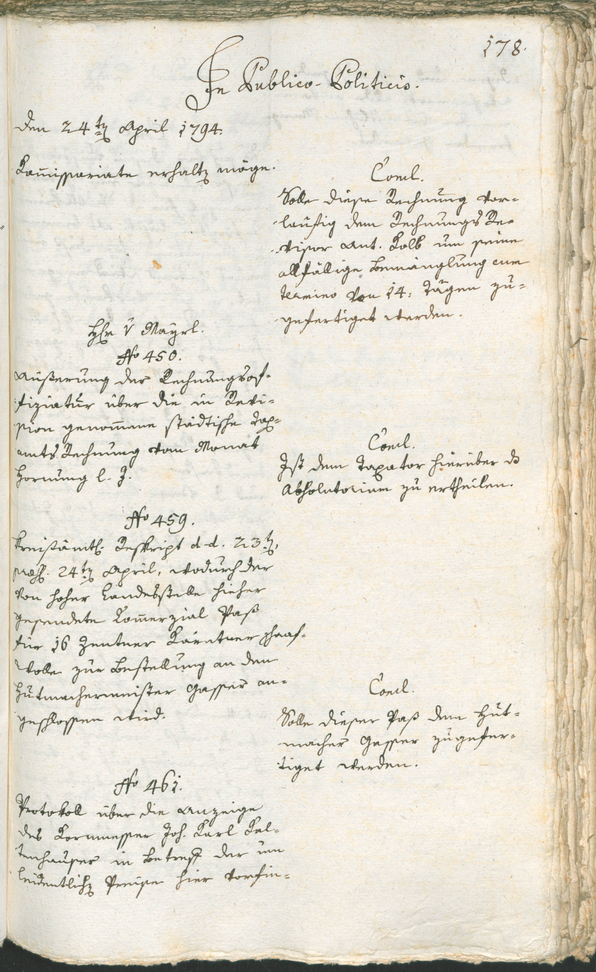 178.
In Publico-Politicis.
den 24ten April 1794.
Kom̅issariate erhalten möge.
Concl.
Solle diese Rechnung vor-
läufig dem Rechnungs Re-
visor Ant. Kolb um seine
allfällige Bemänglung cum
termino von 14: Tägen zu-
gefertiget werden.
Hr v Mayrl.
No 450.
Äußerung der Rechnungsof-
fiziatur über die in Revi-
sion genommene städtische Tax-
amts Rechnung vom Monat
Hornung l. J.
Concl.
Ist dem Taxator hierüber ds
Absolutorium zu ertheilen.
No 459.
Kreisämtl. Reskript d. d. 23ten,
24ten April, wodurch der
von hoher Landesstelle hieher
gesendete Kom̅erzial Paß
für 16 Zentner Kärntner Schaaf-
wolle zur Bestellung an den
Hutmachermeister Gasser an-
geschlossen wird.
Concl.
Solle dieser Paß dem Hut-
macher Gasser zugefer-
tiget werden.
No 461.
Protokoll über die Anzeige
des Kornmesser Joh. Karl Kal-
tenhauser in Betreff der um
leidentliche Preise hier vorfin-